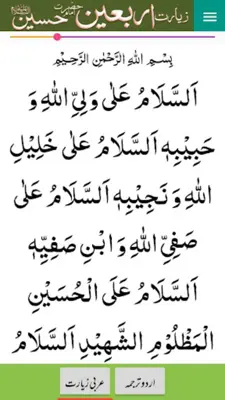 زیارت اربعین حضرت حسین
بِسْمِ اللهِ الرَّحْمٰنِ الرَّحِيْمِ
اَلسَّلَامُ عَلٰى وَلِيِّ اللهِ وَ
حَبِيْبِهٖ اَلسَّلَامُ عَلٰى خَلِيْلِ
اللهِ وَ نَجِيْبِهٖ اَلسَّلَامُ عَلٰى
صَفِيِّ اللهِ وَ ابْنِ صَفِيِّهٖ
اَلسَّلَامُ عَلَى الْحُسَيْنِ
الْمَظْلُوْمِ الشَّهِيْدِ اَلسَّلَامُ
عربی زیارت
اردو ترجمہ